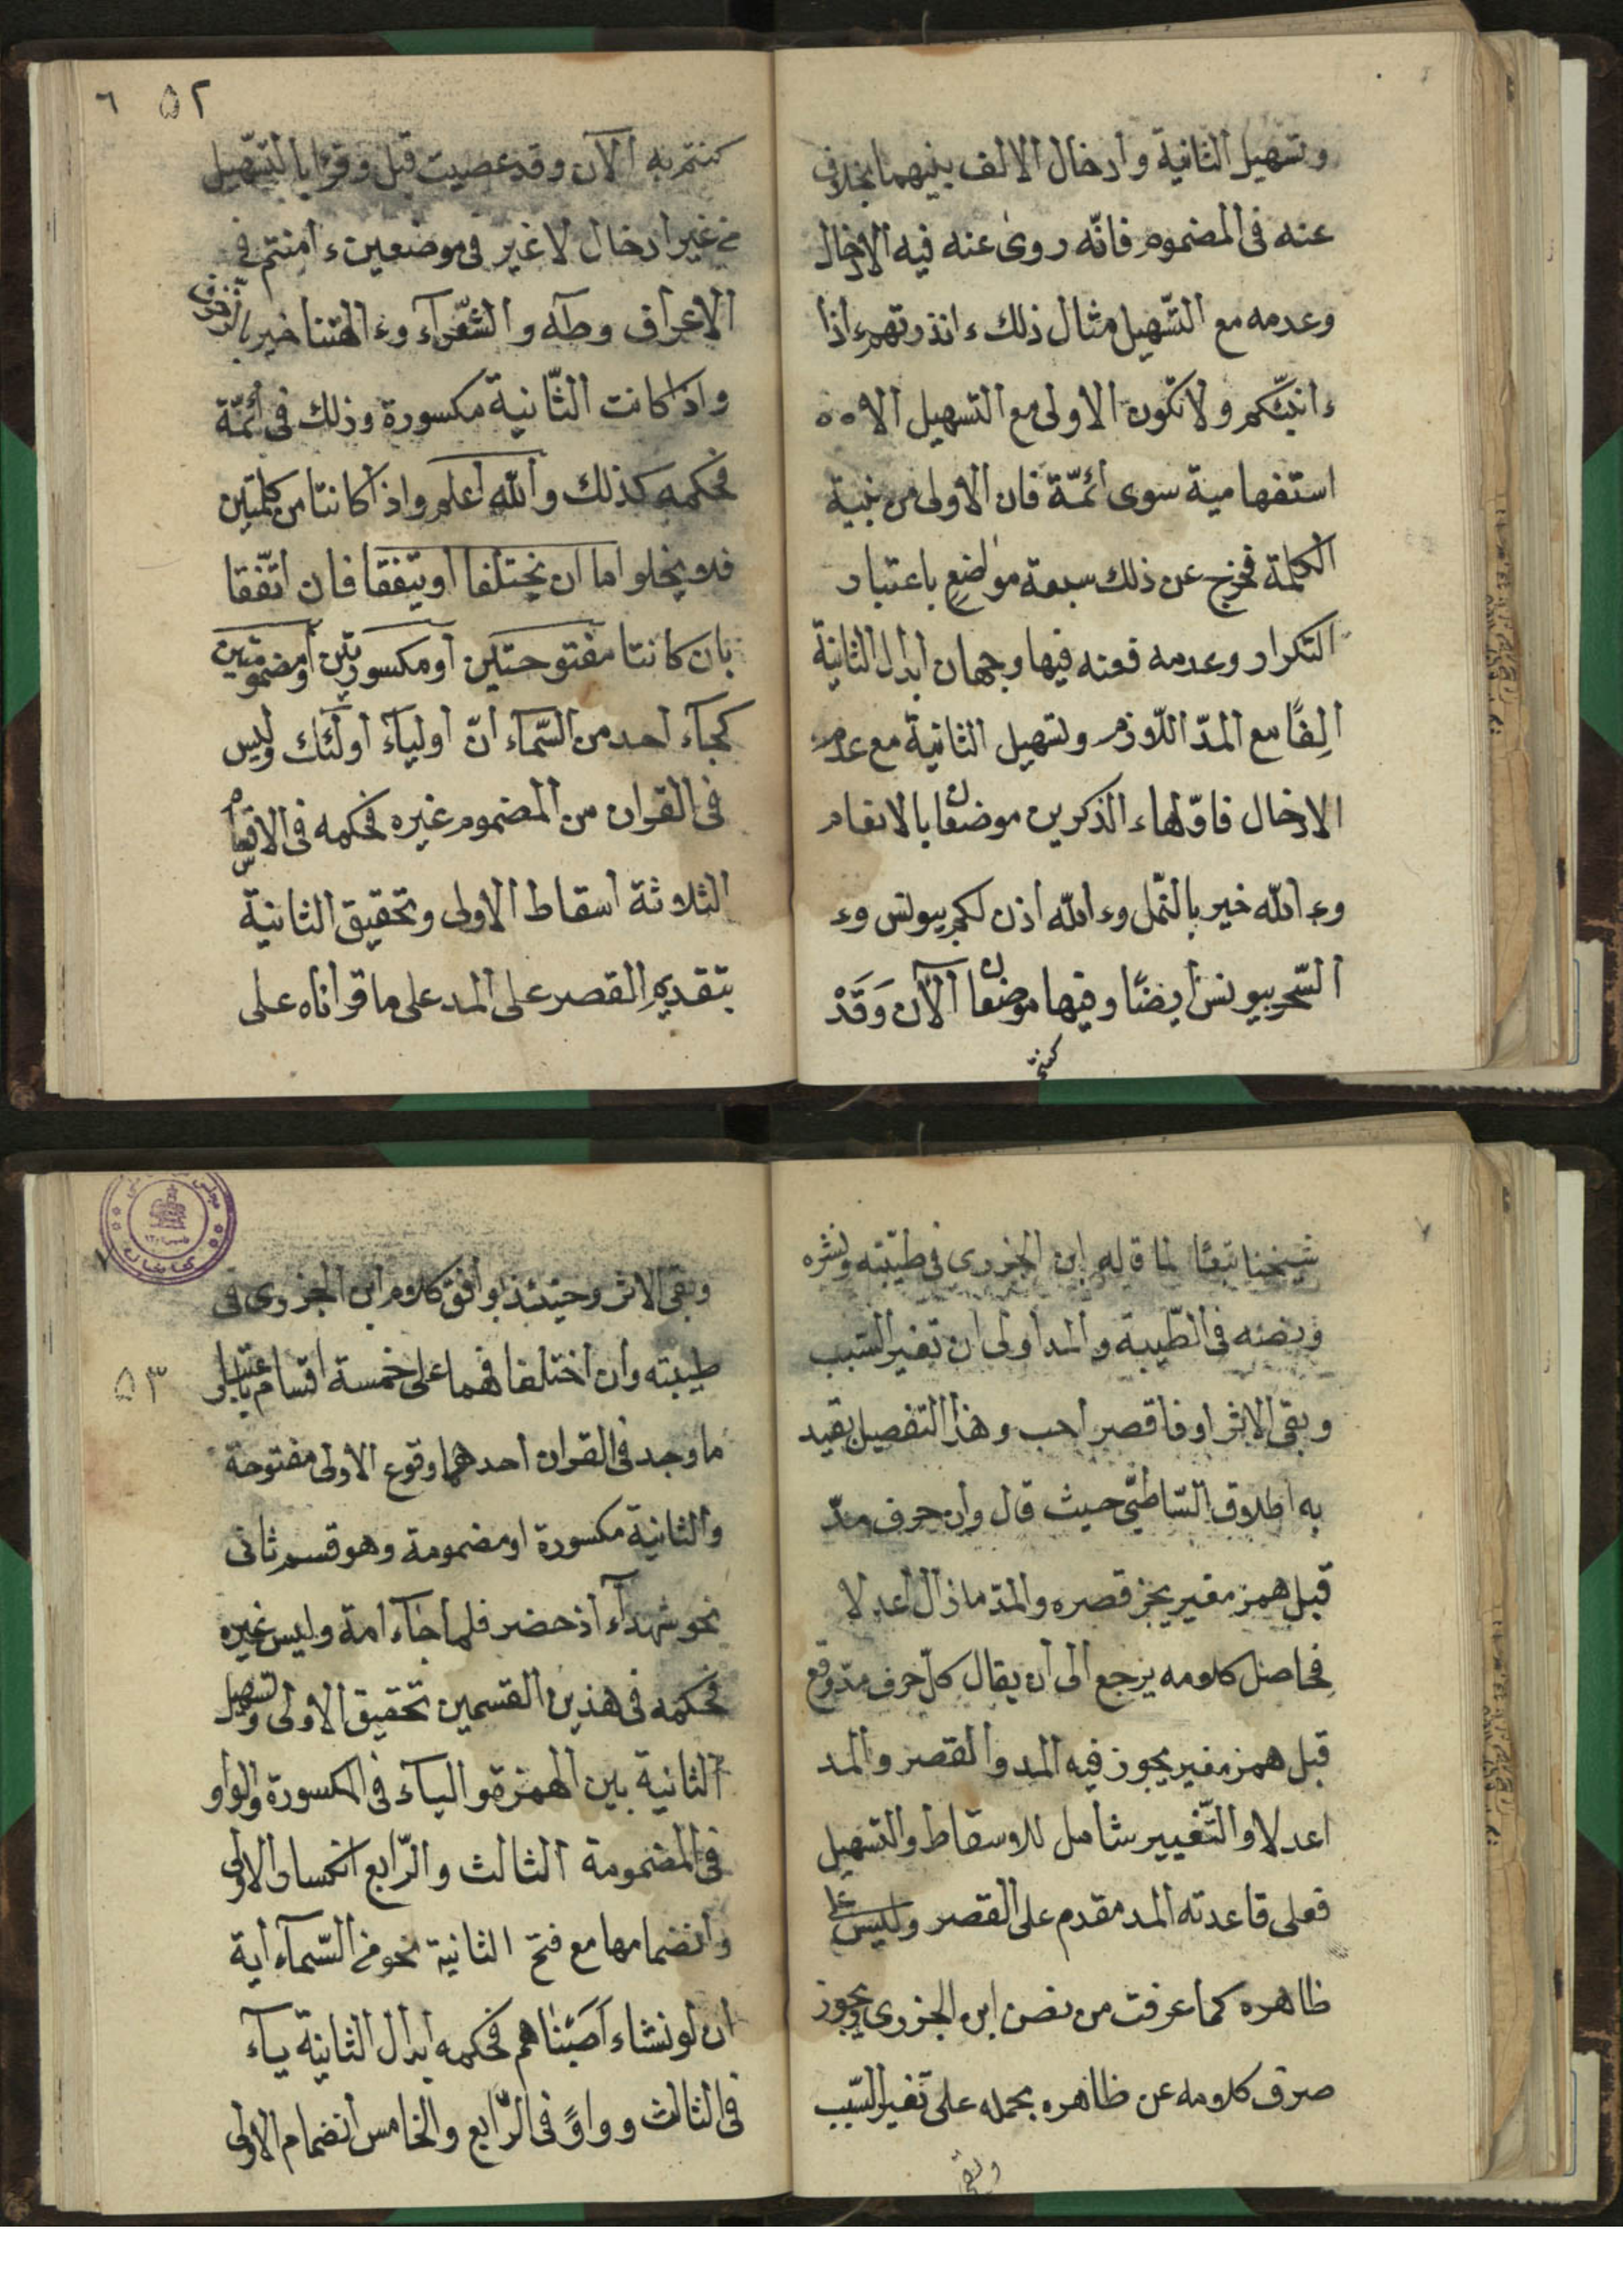 وتسهيل الثانية وادخال الالف بينهما بخلاف
عنه فى المضموم فانّه روى عنه فيه الادخال
وعدمه مع التّسهيل مثال ذلك ءانذرتهم ءاذا
ءانبّئكم ولا تكون الاولى مع التسهيل الا ٥٥
استفهامية سوى أئمّة فان الاولى من بنية
الكلمة فخرج عن ذلك سبعة مواضع باعتبار
التكرار وعدمه فعنه فيها وجهان ابدال الثانية
الِفًا مع المدّ اللّازم وتسهيل الثانية مع عدم
الادخال فاوّلها ءالذكرين موضعان بالانعام
وءالله خير بالنّمل وءالله اذن لكم بيونس وء
السّحر بيونس أيضًا وفيها موضعان آلآن وَقَدْ
كنتم
٥٢ ٦
كنتم به آلآن وقد عصيت قبل وقرا بالتسّهيل
من غير ادخال لا غير فى موضعين ءامنتم فى
الاعراف وطه والشّعرآء وءالهتنا خير بالزخرف
واذا كانت الثّانية مكسورة وذلك فى أئمّة
فحكمه كذلك والله أعلم واذا كانتا من كلمتين
فلا يخلو اما ان يختلفا او يتفقا فان اتّفقا
بان كانتا مفتوحتين او مكسورتين او مضمومتين
كجآء أحد من السّمآء انّ أوليآء أولئك وليس
فى القران من المضموم غيره فحكمه فى الاقسام
الثلاثة اسقاط الاولى وتحقيق الثانية
بتقديم القصر على المد على ما قراناه على
٧
شيخنا تبعًا لما قاله ابن الجزرى فى طيّبته ونشره
ونصه فى الطّيبة والمد أولى ان تغير السّبب
وبقى الاثر او فاقصر احب وهذا التفصيل يقيد
به اطلاق الشّاطبّي حيث قال وإن حرف مدّ
قبل همز مغير يجز قصره والمدّ ما زال اعدلا
فحاصل كلامه يرجع الى ان يقال كلّ حرف مدّ وقع
قبل همز مغير يجوز فيه المد والقصر والمد
اعدلا والتّغيير شامل للاسقاط والتسهيل
فعلى قاعدته المد مقدم على القصر وليس على
ظاهره كما عرفت من نص ابن الجزرى ويجوز
صرف كلامه عن ظاهره بحمله على تغير السّبب
وبقى
٧
وبقى الاثر وحينئذ يوافق كلام ابن الجزرى فى
٥٣
طيبته وان اختلفا فهما على خمسة اقسام باعتبار
ما وجد فى القران احدهما وقوع الاولى مفتوحة
والثانية مكسورة او مضمومة وهو قسم ثانى
نحو شهدآء اذ حضر فلما جآء امة وليس غيره
فحكمه فى هذين القسمين تحقيق الاولى وتسهيل
الثانية بين الهمزة والياء فى المكسورة والواو
فى المضمومة الثالث والرّابع انكسار الاولى
وانضمامها مع فتح الثانية نحو من السّمآء اية
ان لو نشاء أصبناهم فحكمه ابدال الثانية يآء
فى الثالث وواوً فى الرّابع والخامس انضمام الاولى